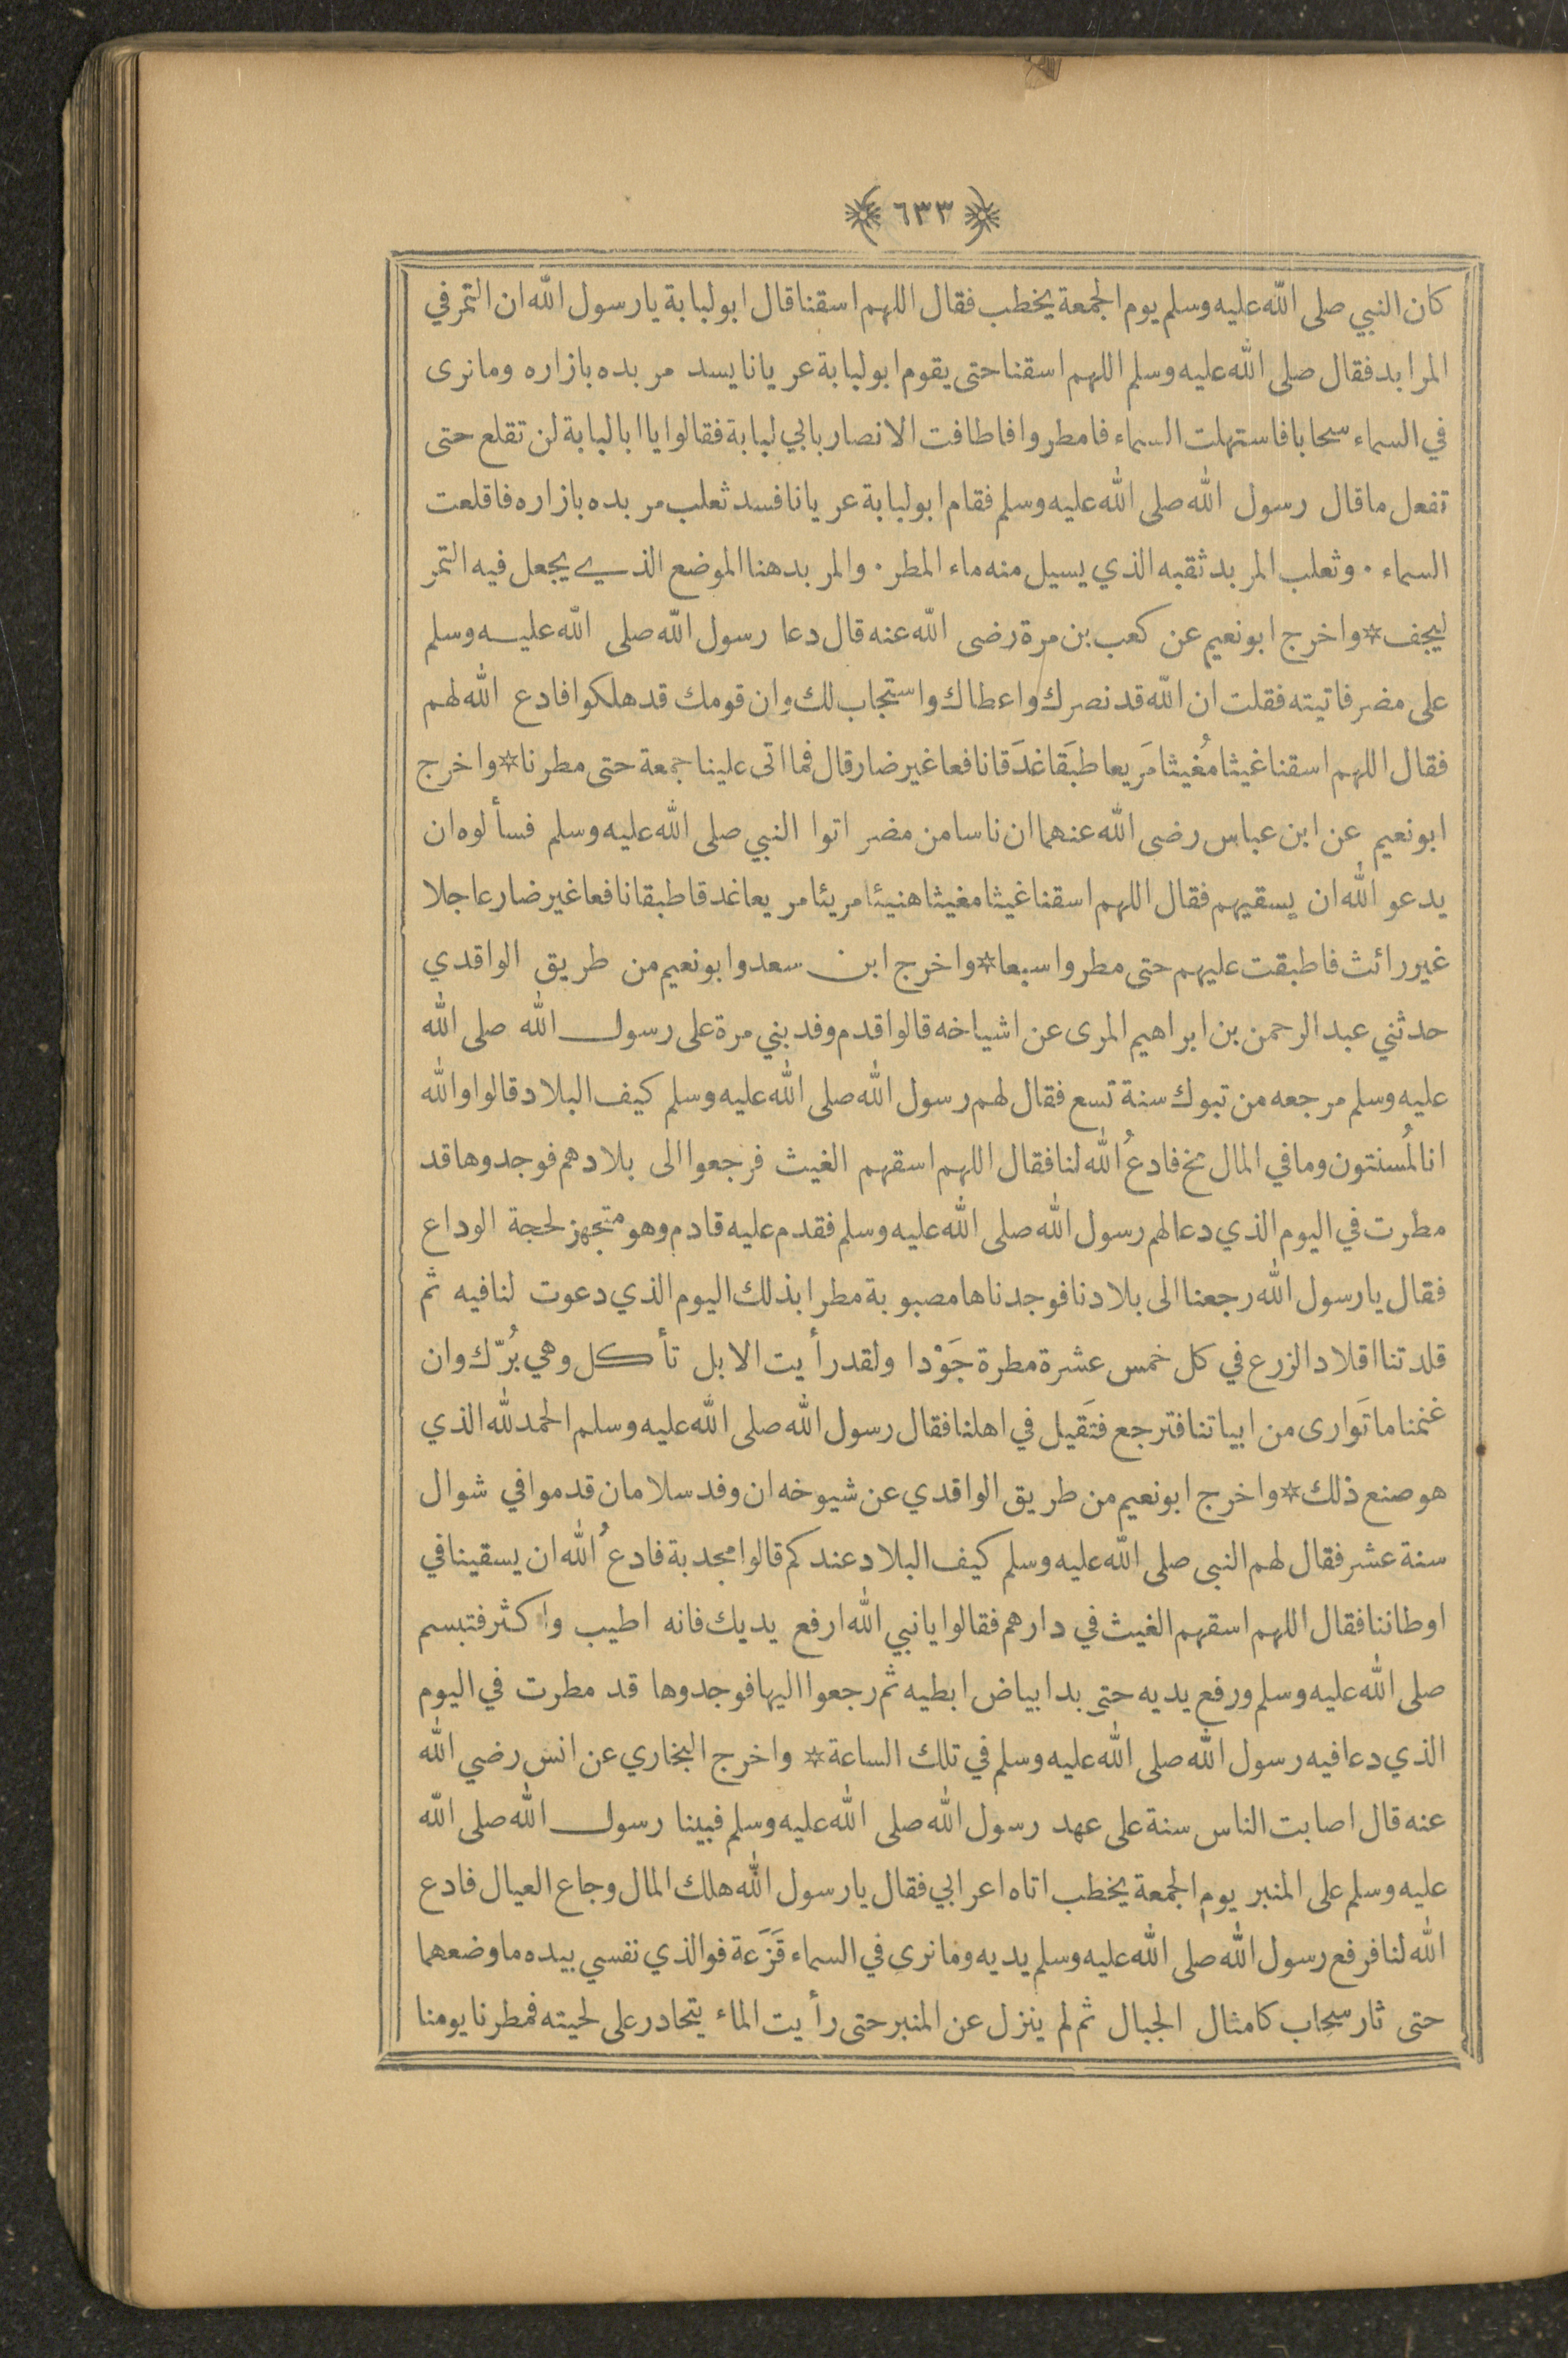 ٦٣٣
كان النبي صلى الله عليه وسلم يوم الجمعة يخطب فقال اللهم اسقنا قال ابو لبابة يا رسول الله ان التمر في
المرابد فقال صلى الله عليه وسلم اللهم اسقنا حتى يقوم ابو لبابة عريانا يسد مربده بازاره وما نرى
في السماء سحابا فاستهلت السماء فامطروا فاطافت الانصار بابي لبابة فقالوا يا ابا لبابة لن تقلع حتى
تفعل ما قال رسول الله صلى الله عليه وسلم فقام ابو لبابة عريانا فسد ثعلب مربده بازاره فاقلعت
السماء . وثعلب المربد ثقبه الذي يسيل منه ماء المطر . والمربد هنا الموضع الذي يجعل فيه التمر
ليجف * واخرج ابو نعيم عن كعب بن مرة رضى الله عنه قال دعا رسول الله صلى الله عليه وسلم
على مضر فاتيته فقلت ان الله قد نصرك واعطاك واستجاب لك وان قومك قد هلكوا فادع الله لهم
فقال اللهم اسقنا غيثا مُغيثا مَريعا طبَقا غدَقا نافعا غير ضار قال فما اتى علينا جمعة حتى مطرنا * واخرج
ابو نعيم عن ابن عباس رضى الله عنهما ان ناسا من مضر اتوا النبي صلى الله عليه وسلم فسألوه ان
يدعو الله ان يسقيهم فقال اللهم اسقنا غيثا مغيثا هنيئا مريئا مريعا غدقا طبقا نافعا غير ضار عاجلا
غير رائث فاطبقت عليهم حتى مطروا سبعا * واخرج ابن سعد وابو نعيم من طريق الواقدي
حدثني عبد الرحمن بن ابراهيم المرى عن اشياخه قالوا قدم وفد بني مرة على رسول الله صلى الله
عليه وسلم مرجعه من تبوك سنة تسع فقال لهم رسول الله صلى الله عليه وسلم كيف البلاد قالوا والله
انا لمُسنتون وما في المال مخ فادعُ الله لنا فقال اللهم اسقهم الغيث فرجعوا الى بلادهم فوجدوها قد
مطرت في اليوم الذي دعا لهم رسول الله صلى الله عليه وسلم فقدم عليه قادم وهو متجهز لحجة الوداع
فقال يا رسول الله رجعنا الى بلادنا فوجدناها مصبوبة مطرا بذلك اليوم الذي دعوت لنا فيه ثم
قلدتنا اقلاد الزرع في كل خمس عشرة مطرة جَوْدا ولقد رأيت الابل تأكل وهي بُرّك وان
غنمنا ما تَوارى من ابياتنا فترجع فتَقيل في اهلنا فقال رسول الله صلى الله عليه وسلم الحمد لله الذي
هو صنع ذلك * واخرج ابو نعيم من طريق الواقدي عن شيوخه ان وفد سلامان قدموا في شوال
سنة عشر فقال لهم النبى صلى الله عليه وسلم كيف البلاد عندكم قالوا مجدبة فادعُ الله ان يسقينا في
اوطاننا فقال اللهم اسقهم الغيث في دارهم فقالوا يا نبي الله ارفع يديك فانه اطيب واكثر فتبسم
صلى الله عليه وسلم ورفع يديه حتى بدا بياض ابطيه ثم رجعوا اليها فوجدوها قد مطرت في اليوم
الذي دعا فيه رسول الله صلى الله عليه وسلم في تلك الساعة * واخرج البخاري عن انس رضي الله
عنه قال اصابت الناس سنة على عهد رسول الله صلى الله عليه وسلم فبينا رسول الله صلى الله
عليه وسلم على المنبر يوم الجمعة يخطب اتاه اعرابي فقال يا رسول الله هلك المال وجاع العيال فادع
الله لنا فرفع رسول الله صلى الله عليه وسلم يديه وما نرى في السماء قَزَعة فوالذي نفسي بيده ما وضعهما
حتى ثار سحاب كامثال الجبال ثم لم ينزل عن المنبر حتى رأيت الماء يتحادر على لحيته فمطرنا يومنا